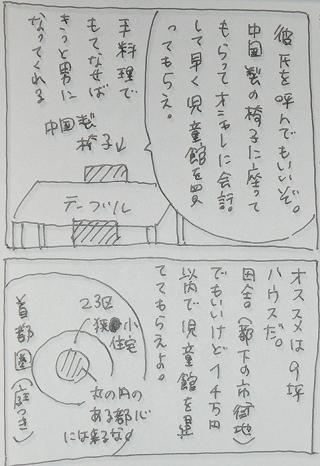 彼氏を呼んでもいいぞ。
中国製の椅子に座って
もらってオシャレに会話。
して早く児童館を買
ってもらえ。
手料理で
もてなせば
きっと男に
なってくれる
中国製
椅子
テーブル
オススメは9坪
ハウスだ。
田舎(都下の市街地)
でもいいけど1千万円
以内で児童館を建
ててもらえよ。
23区
狭小
住宅
丸の円の
ある都心
には来るな
首都圏(庭つき)